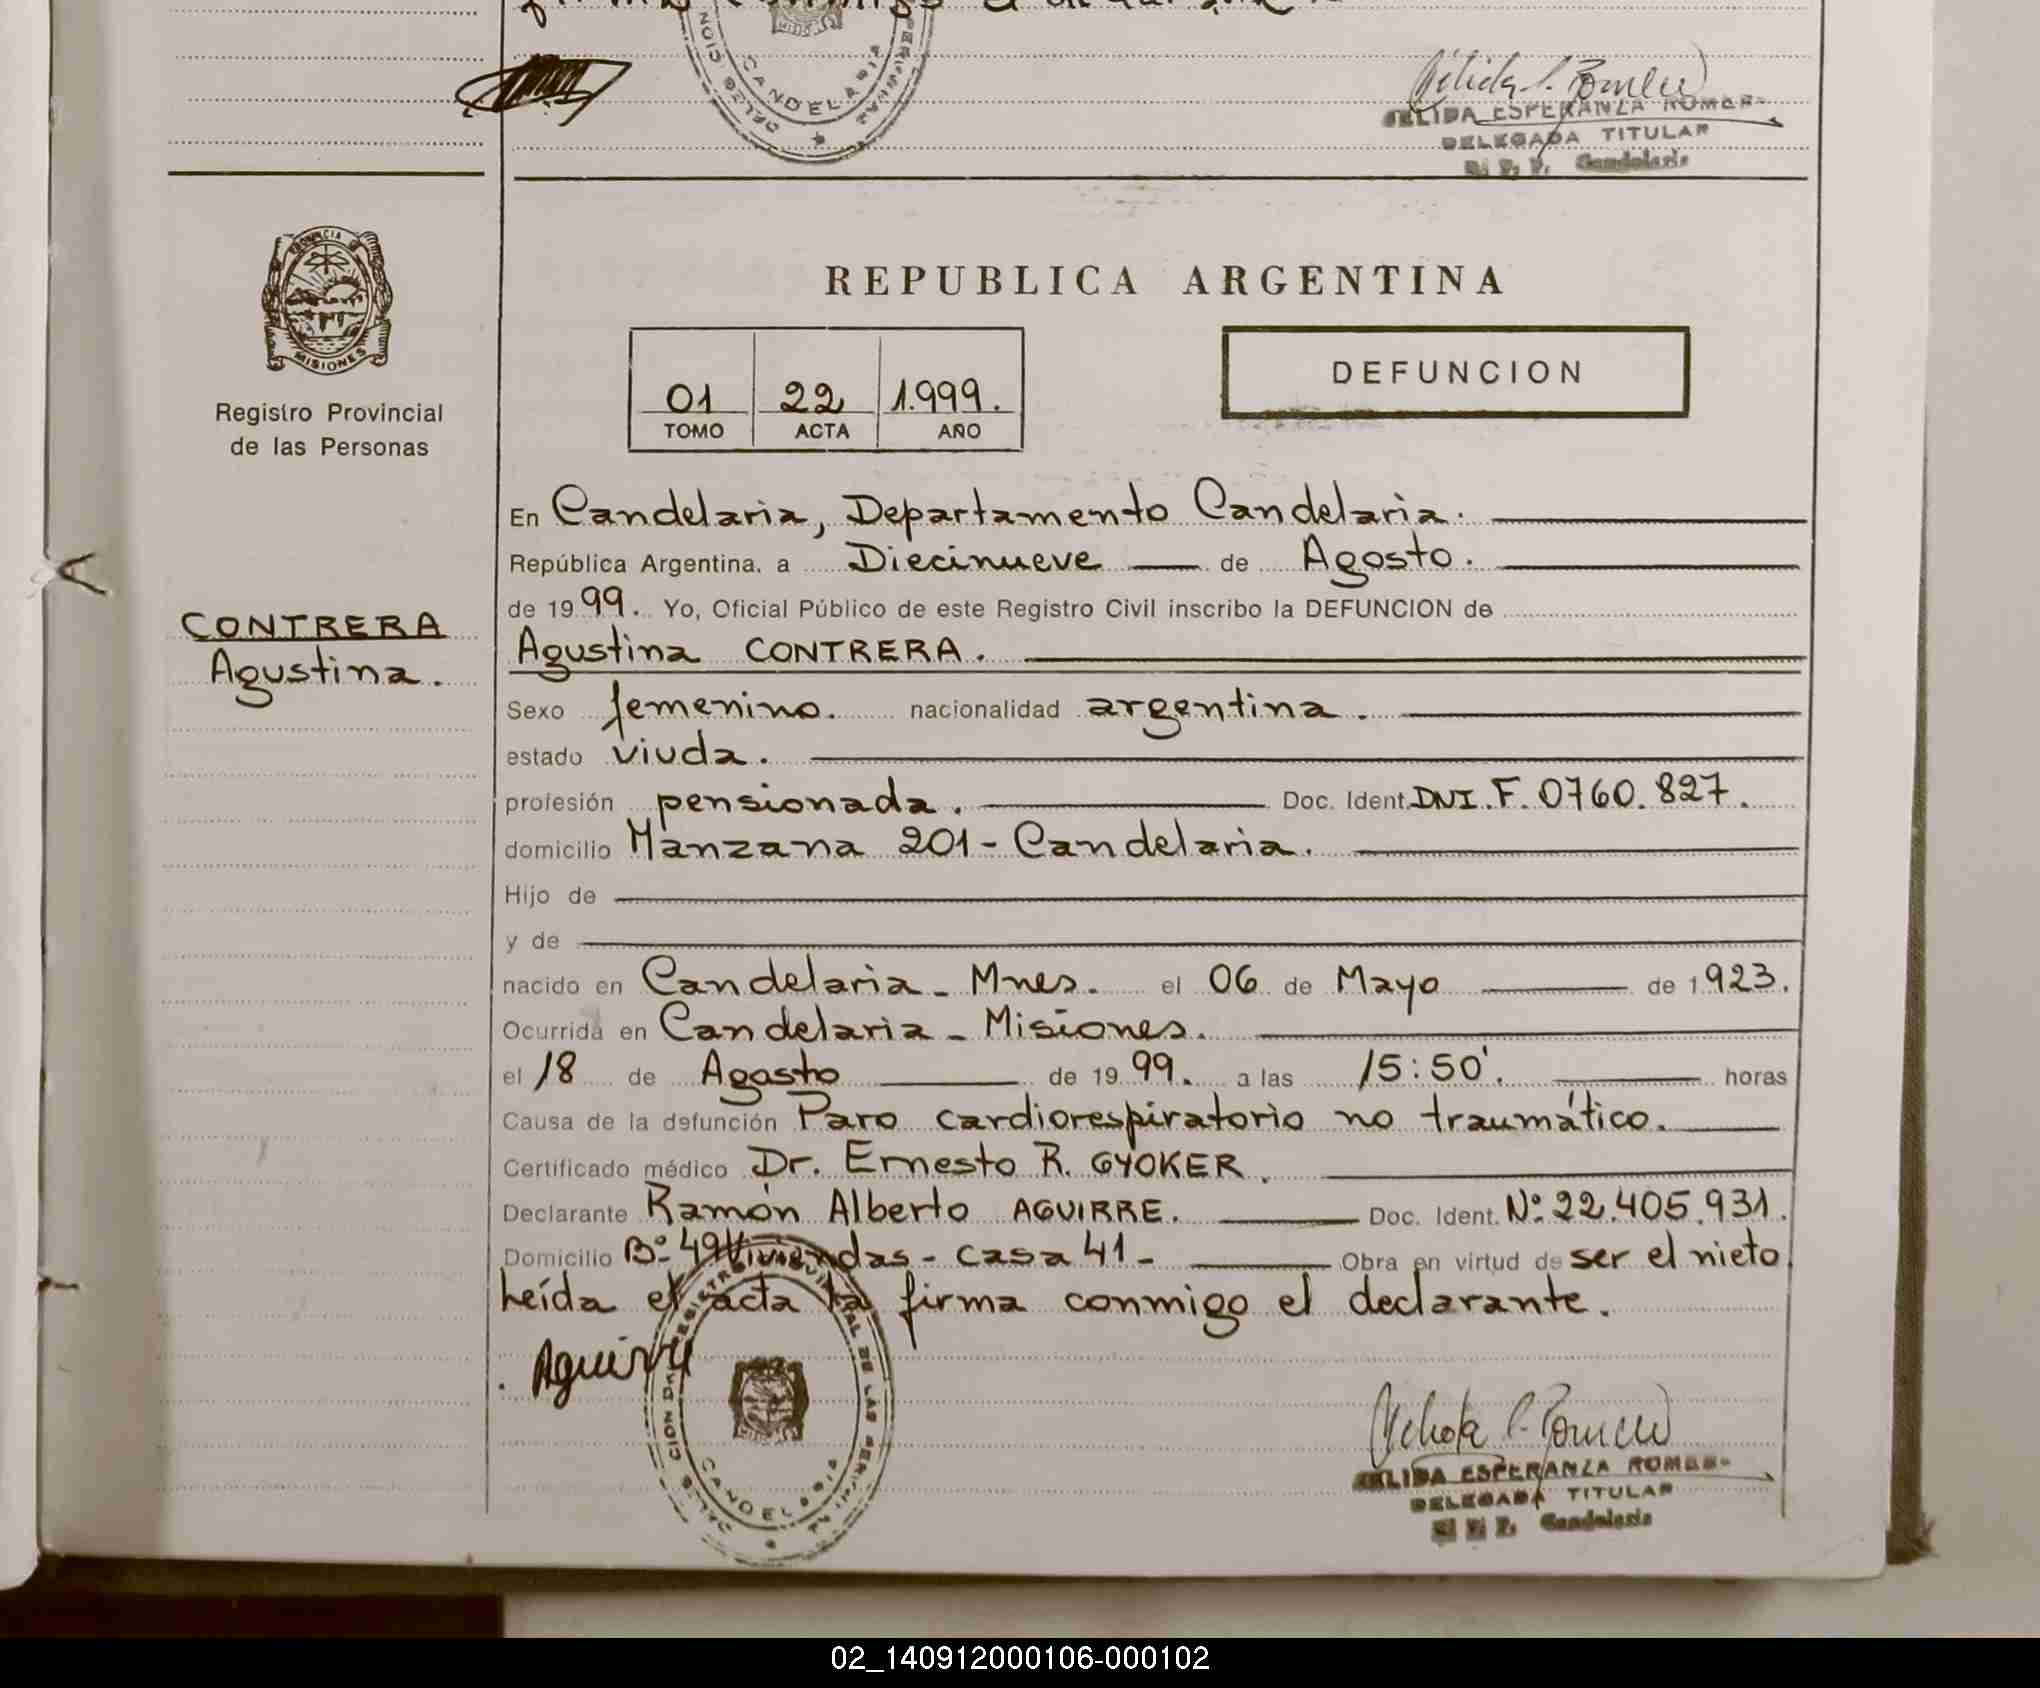 firma conmigo el declarante.
CANDELARIA
NELIDA ESPERANZA ROMERO
DELEGADA TITULAR
R. P. P. Candelaria
PROVINCIA DE
MISIONES
REPUBLICA ARGENTINA
DEFUNCION
01 22 1.999.
TOMO ACTA AÑO
Registro Provincial
de las Personas
En Candelaria, Departamento Candelaria.
República Argentina, a Diecinueve de Agosto.
de 1999. Yo, Oficial Público de este Registro Civil inscribo la DEFUNCION de
CONTRERA
Agustina.
Agustina CONTRERA.
Sexo femenino. nacionalidad argentina.
estado viuda.
profesión pensionada. Doc. Ident. DNI. F. 0760.827.
domicilio Manzana 201 - Candelaria.
Hijo de
y de
nacido en Candelaria - Mnes. el 06 de Mayo de 1923.
Ocurrida en Candelaria - Misiones.
el 18 de Agosto de 1999. a las 15:50'. horas
Causa de la defunción Paro cardiorespiratorio no traumático.
Certificado médico Dr. Ernesto R. GYOKER.
Declarante Ramón Alberto AGUIRRE. Doc. Ident. Nº 22.405.931.
Domicilio Bº 49 Viviendas - casa 41 - Obra en virtud de ser el nieto
Leída el acta la firma conmigo el declarante.
Aguirre
CANDELARIA
NELIDA ESPERANZA ROMERO
DELEGADA TITULAR
R. P. P. Candelaria
02_140912000106-000102